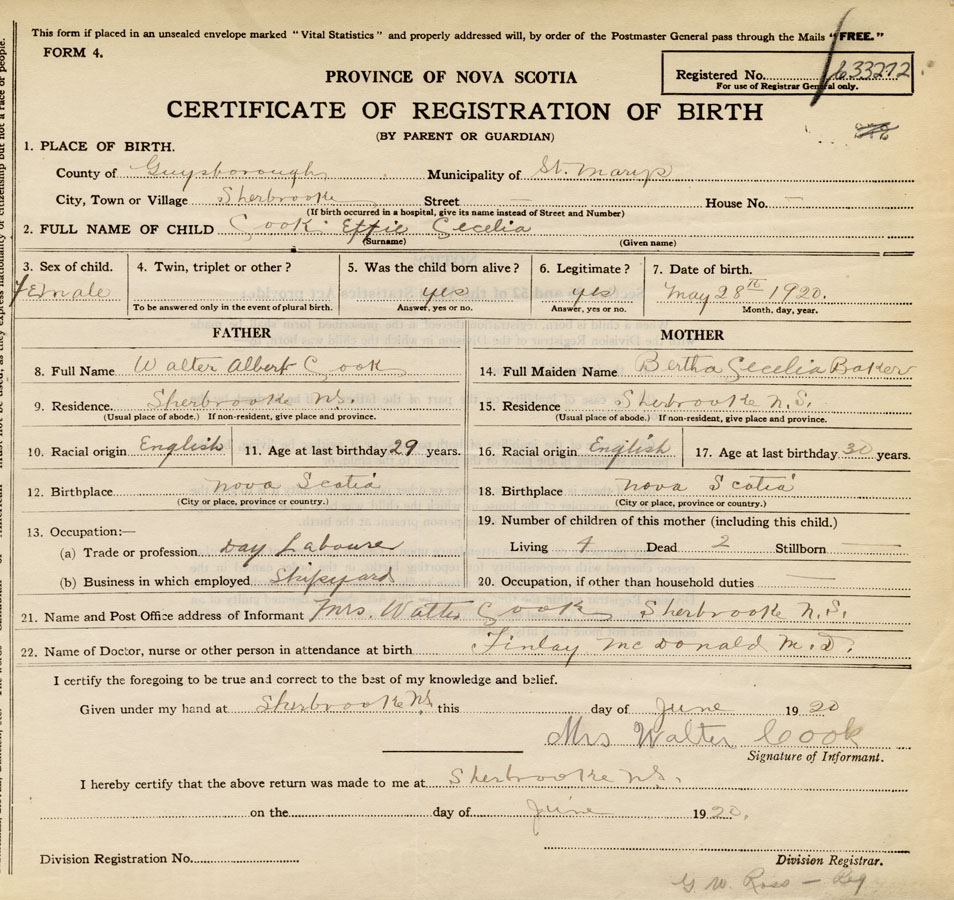 This form if placed in an unsealed envelope marked "Vital Statistics" and properly addressed will, by order of the Postmaster General pass through the Mails "FREE."
FORM 4.
PROVINCE OF NOVA SCOTIA
Registered No. 633272
For use of Registrar General only.
CERTIFICATE OF REGISTRATION OF BIRTH
(BY PARENT OR GUARDIAN)
1. PLACE OF BIRTH.
County of Guysborough Municipality of St. Marys
City, Town or Village Sherbrooke Street — House No. —
(If birth occurred in a hospital, give its name instead of Street and Number)
2. FULL NAME OF CHILD Cook Effie Cecelia
(Surname) (Given name)
3. Sex of child. 4. Twin, triplet or other? 5. Was the child born alive? 6. Legitimate? 7. Date of birth.
Female yes yes May 28th 1920.
To be answered only in the event of plural birth. Answer, yes or no. Answer, yes or no. Month, day, year.
FATHER MOTHER
8. Full Name Walter Albert Cook 14. Full Maiden Name Bertha Cecelia Baker
9. Residence. Sherbrooke N.S. 15. Residence Sherbrooke N.S.
(Usual place of abode.) If non-resident, give place and province. (Usual place of abode.) If non-resident, give place and province.
10. Racial origin English 11. Age at last birthday 29 years. 16. Racial origin English 17. Age at last birthday 30 years.
12. Birthplace Nova Scotia 18. Birthplace Nova Scotia
(City or place, province or country.) (City or place, province or country.)
13. Occupation:— 19. Number of children of this mother (including this child.)
(a) Trade or profession Day Labourer Living 4 Dead 2 Stillborn —
(b) Business in which employed Shipyard 20. Occupation, if other than household duties —
21. Name and Post Office address of Informant Mrs. Walter Cook Sherbrooke N.S.
22. Name of Doctor, nurse or other person in attendance at birth Finlay McDonald M.D.
I certify the foregoing to be true and correct to the best of my knowledge and belief.
Given under my hand at Sherbrooke N.S. this day of June 1920
Mrs Walter Cook
Signature of Informant.
I hereby certify that the above return was made to me at Sherbrooke N.S.
on the day of June 1920.
Division Registration No.
Division Registrar.
G. W. Ross — Reg